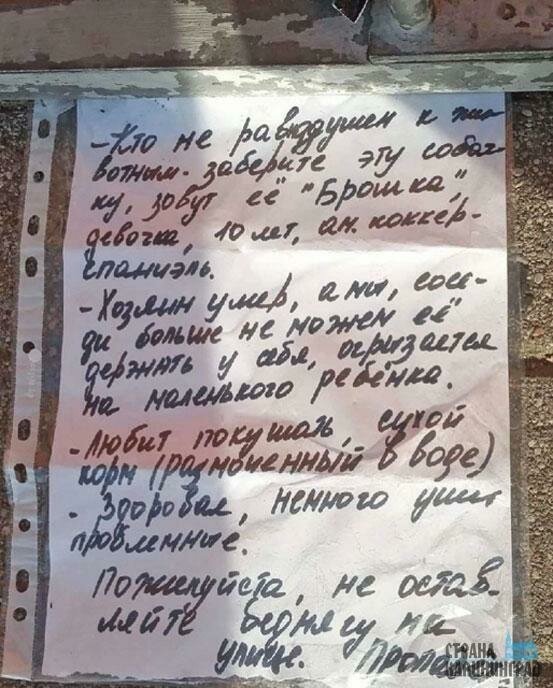 - Кто не равнодушен к жи-
вотным- заберите эту собач-
ку, зовут её "Брошка",
девочка, 10 лет, ам. коккер-
спаниэль.
- Хозяин умер, а мы, сосе-
ди больше не можем её
держать у себя, огризается
на маленького ребёнка.
- Любит покушать, сухой
корм (размоченный в воде)
- Здоровая, немного ушки
проблемные.
Пожалуйста, не остав-
ляйте беднягу на
улице.
СТРАНА
КАЛИНИНГРАД